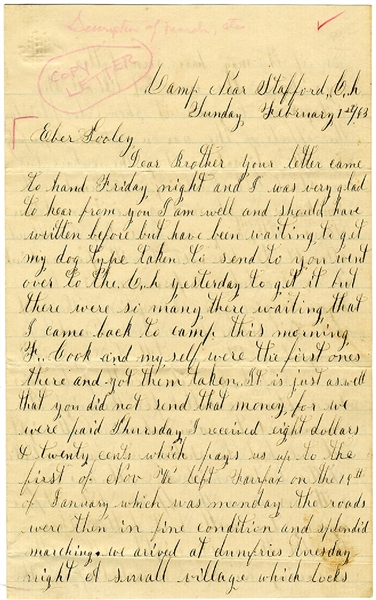 Description of March, etc
COPY
LETTER
Camp Near Stafford, C,h
Sunday February 1st/63
Eber Sooley
Dear Brother Your letter came
to hand Friday night and I was very glad
to hear from you I am well and should have
written before but have been waiting to get
my dog type taken to send to you went
over to the C,h yesterday to get it but
there were so many there waiting that
I came back to camp this morning
F. Cook and my self were the first ones
there and got them taken. It is just as well
that you did not send that money, for we
were paid Thursday I received eight dollars
& twenty cents which pays us up to the
first of Nov We left Fairfax on the 19th
of January which was monday the roads
were then in fine condition and splendid
marching. we arived at dumfries Tuesday
night A small village which looks